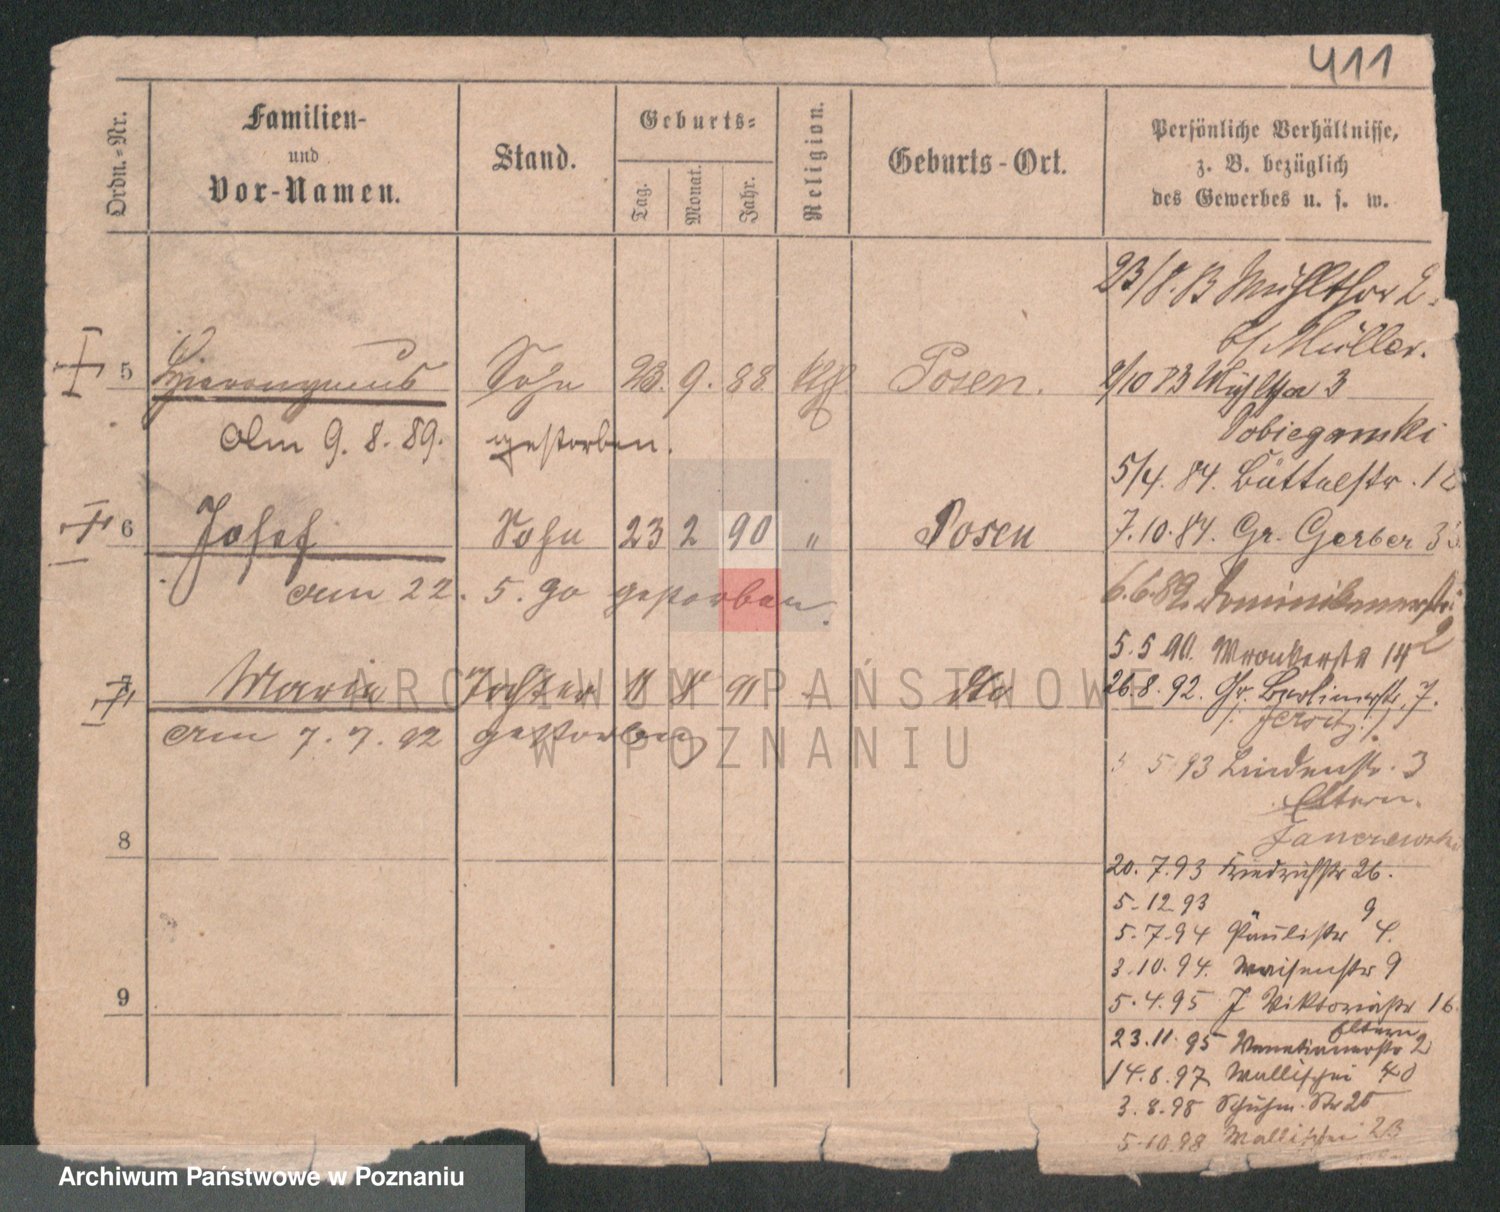 411
Ordn.-Nr.
Familien-
und
Vor-Namen.
Stand.
Geburts-
Tag.
Monat.
Jahr.
Religion.
Geburts-Ort.
Persönliche Verhältnisse,
z. B. bezüglich
des Gewerbes u. s. w.
23/8.83 Mühlthor 2.
b/ Müller.
5 Hieronymus Sohn 23. 9. 88 kth Posen.
2/10 83 Mühlthor 3
Am 9. 8. 89. gestorben.
5/4. 84. Büttelstr. 12
6 Josef Sohn 23 2 90 " Posen
7.10.84. Gr. Gerber 33
am 22. 5. 90 gestorben.
6.6.89. Dominikanerstr.
2
5.5 90. Wronkerstr 14
7 Maria Tochter 11 11 91 dto
26.8.92. Gr. Berlinerstr. 7.
am 7. 7. 92 gestorben
5 93 Lindenstr. 3
Eltern.
8
20. 7.93 Friedrichstr 26.
5-12 93 " 9
5.7.94 Paulistr 4.
3.10.94. Waisenstr 9
9
5.4.95 J Viktoriastr 16.
Eltern
23.11.95 Venetianerstr 2
14.8.97 Wallischei 40
3.8.98 Schuhm. Str 25
5-10.98 Wallischei 23
ARCHIWUM PAŃSTWOWE
W POZNANIU
Archiwum Państwowe w Poznaniu